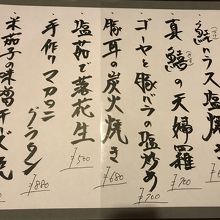 鮭ハラス塩焼き
真鱚の天婦羅
¥700
ゴーヤと豚バラの塩炒め
¥700
豚耳の炭火焼き
¥680
塩茹で落花生
¥500
手作りマカロニグラタン
¥880
米茄子の味噌チーズ焼